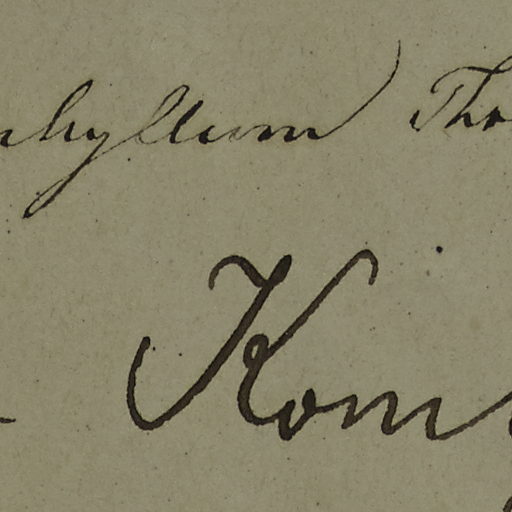 phyllum Tho
Kom